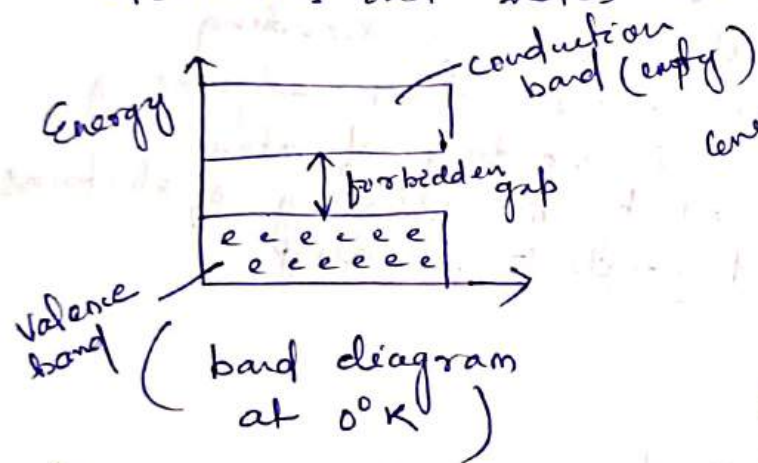 Energy
conduction
band (empty)
forbidden
gap
e e e e e e
e e e e e e
Valence
band
( band diagram
at 0° K )